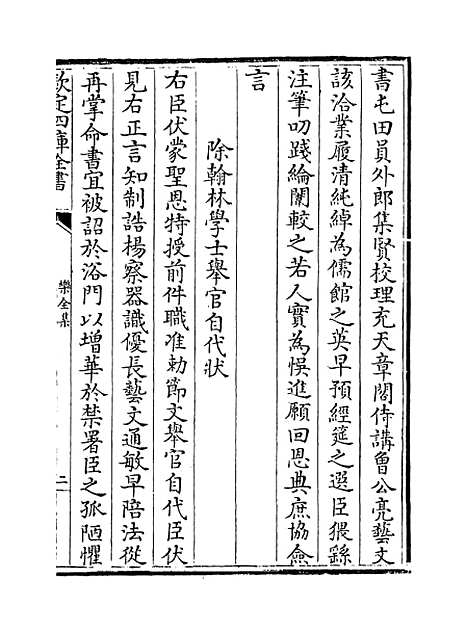 書屯田員外郎集賢校理充天章閣侍講曾公亮藝文
該洽業履清純綽為儒館之英早預經筵之選臣猥繇
注筆叨踐綸闈較之若人實為悞進願回恩典庶協僉
言
除翰林學士舉官自代狀
右臣伏蒙聖恩特授前件職准勅節文舉官自代臣伏
見右正言知制誥楊察器識優長藝文通敏早陪法從
再掌命書宜被詔於浴門以增華於禁署臣之孤陋懼
欽定四庫全書
樂全集
二